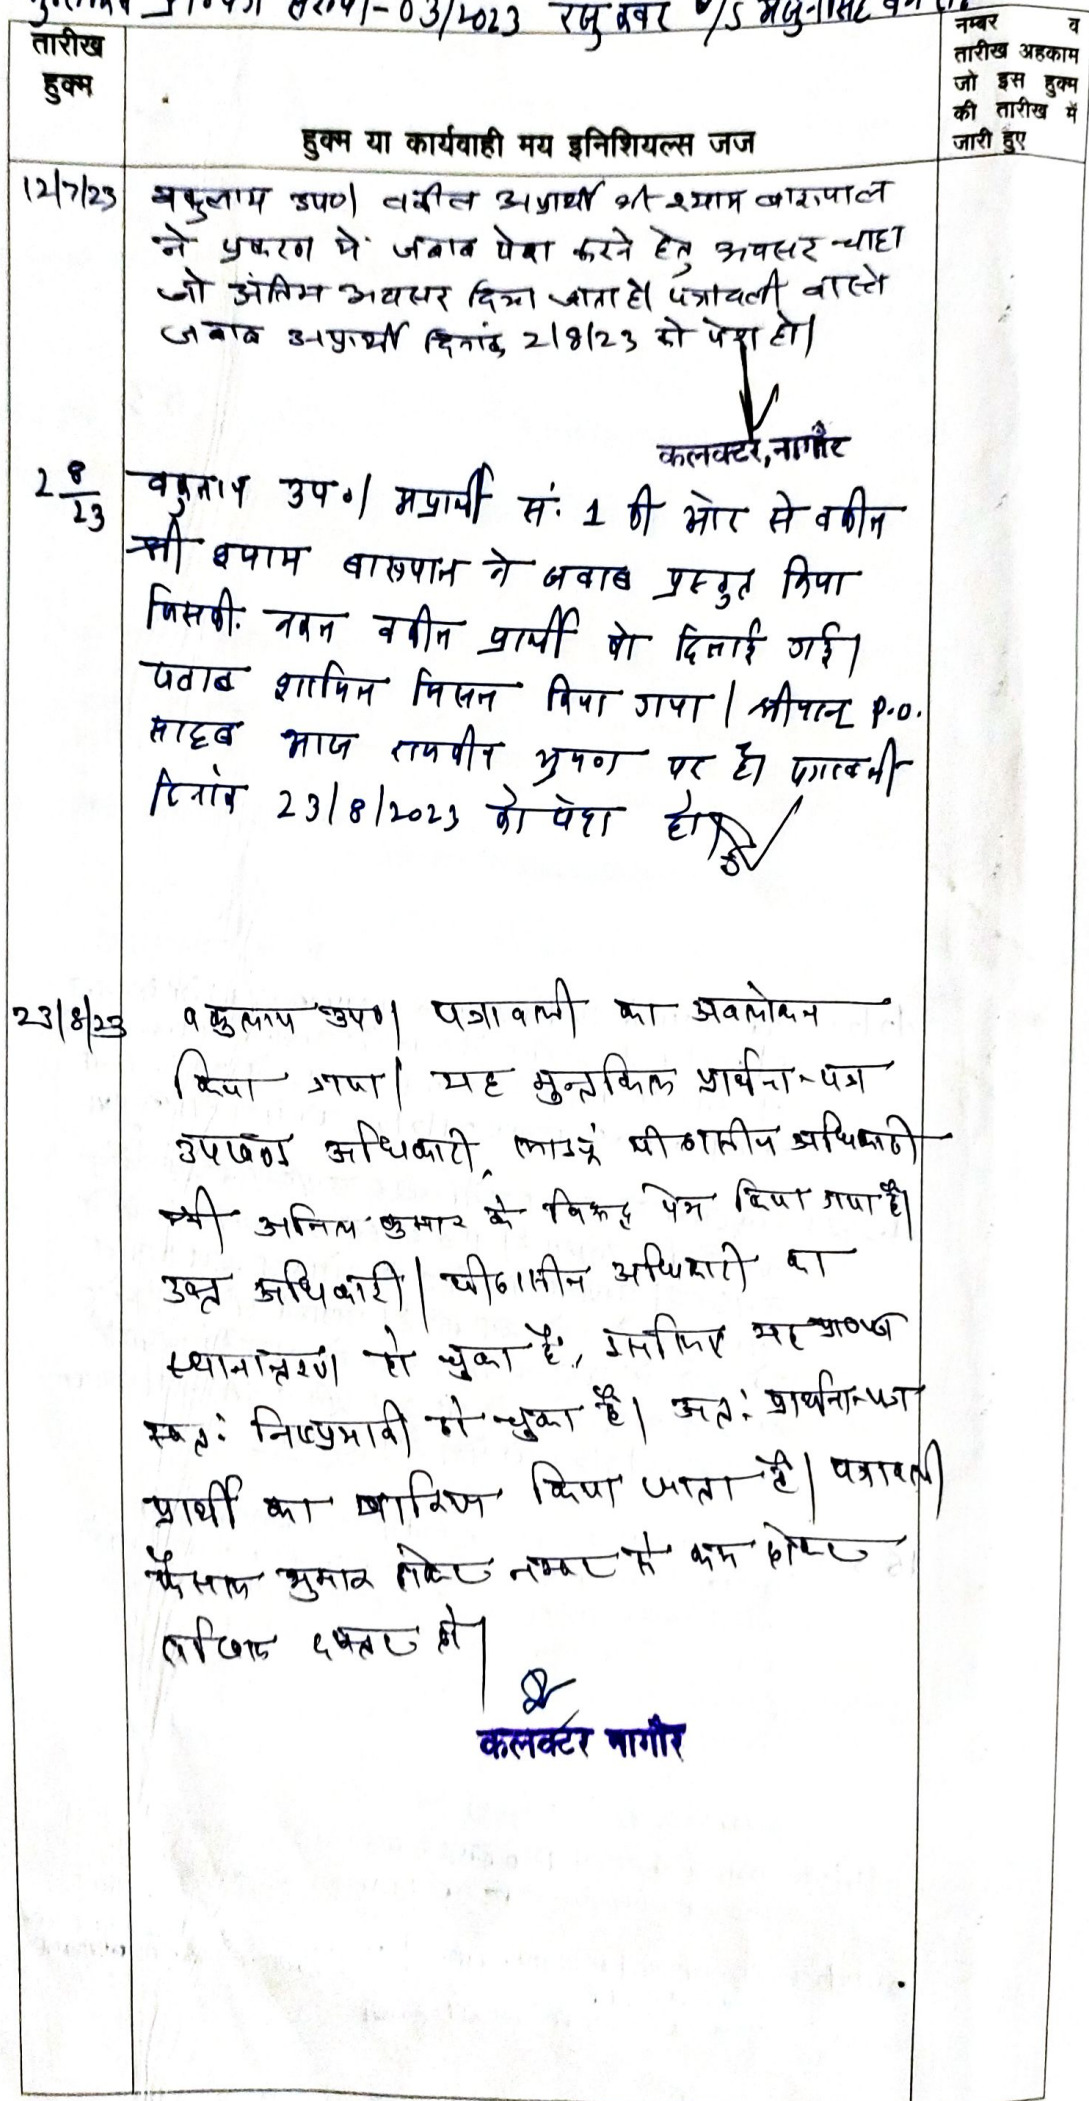 संख्या-03/2023 रजु कवर V/S
तारीख
हुक्म
हुक्म या कार्यवाही मय इनिशियल्स जज
नम्बर व
तारीख अहकाम
जो इस हुक्म
की तारीख में
जारी हुए
12/7/23 वकुलाय उप०। वकील अप्रार्थी श्री श्याम बारुपाल
ने प्रकरण में जबाब पेश करने हेतु अवसर चाहा
जो अंतिम अवसर दिया जाता है। पत्रावली वास्ते
जबाब अप्रार्थी दिनांक 2/8/23 को पेश हो।
कलक्टर, नागौर
2/8/23 वकुलाय उप०। अप्रार्थी सं. 1 की ओर से वकील
श्री श्याम बारुपाल ने जवाब प्रस्तुत किया
जिसकी नकल वकील प्रार्थी को दिलाई गई।
जवाब शामिल मिसल किया गया। श्रीमान् P.O.
साहब आज राजकीय भ्रमण पर है। पत्रावली
दिनांक 23/8/2023 को पेश हो।
23/8/23 वकुलाय उप०। पत्रावली का अवलोकन
किया गया। यह मुन्तकिल प्रार्थना-पत्र
उपखण्ड अधिकारी, लाडनूं पीठासीन अधिकारी
श्री अनिल कुमार के विरूद्ध पेश किया गया है।
उक्त अधिकारी। पीठासीन अधिकारी का
स्थानान्तरण हो चुका है, इसलिए यह
स्वतः निष्प्रभावी हो चुका है। अतः प्रार्थना-पत्र
प्रार्थी का खारिज किया जाता है। पत्रावली
फैसल शुमार होकर नम्बर से कम होकर
दाखिल दफ्तर हो।
कलक्टर नागौर